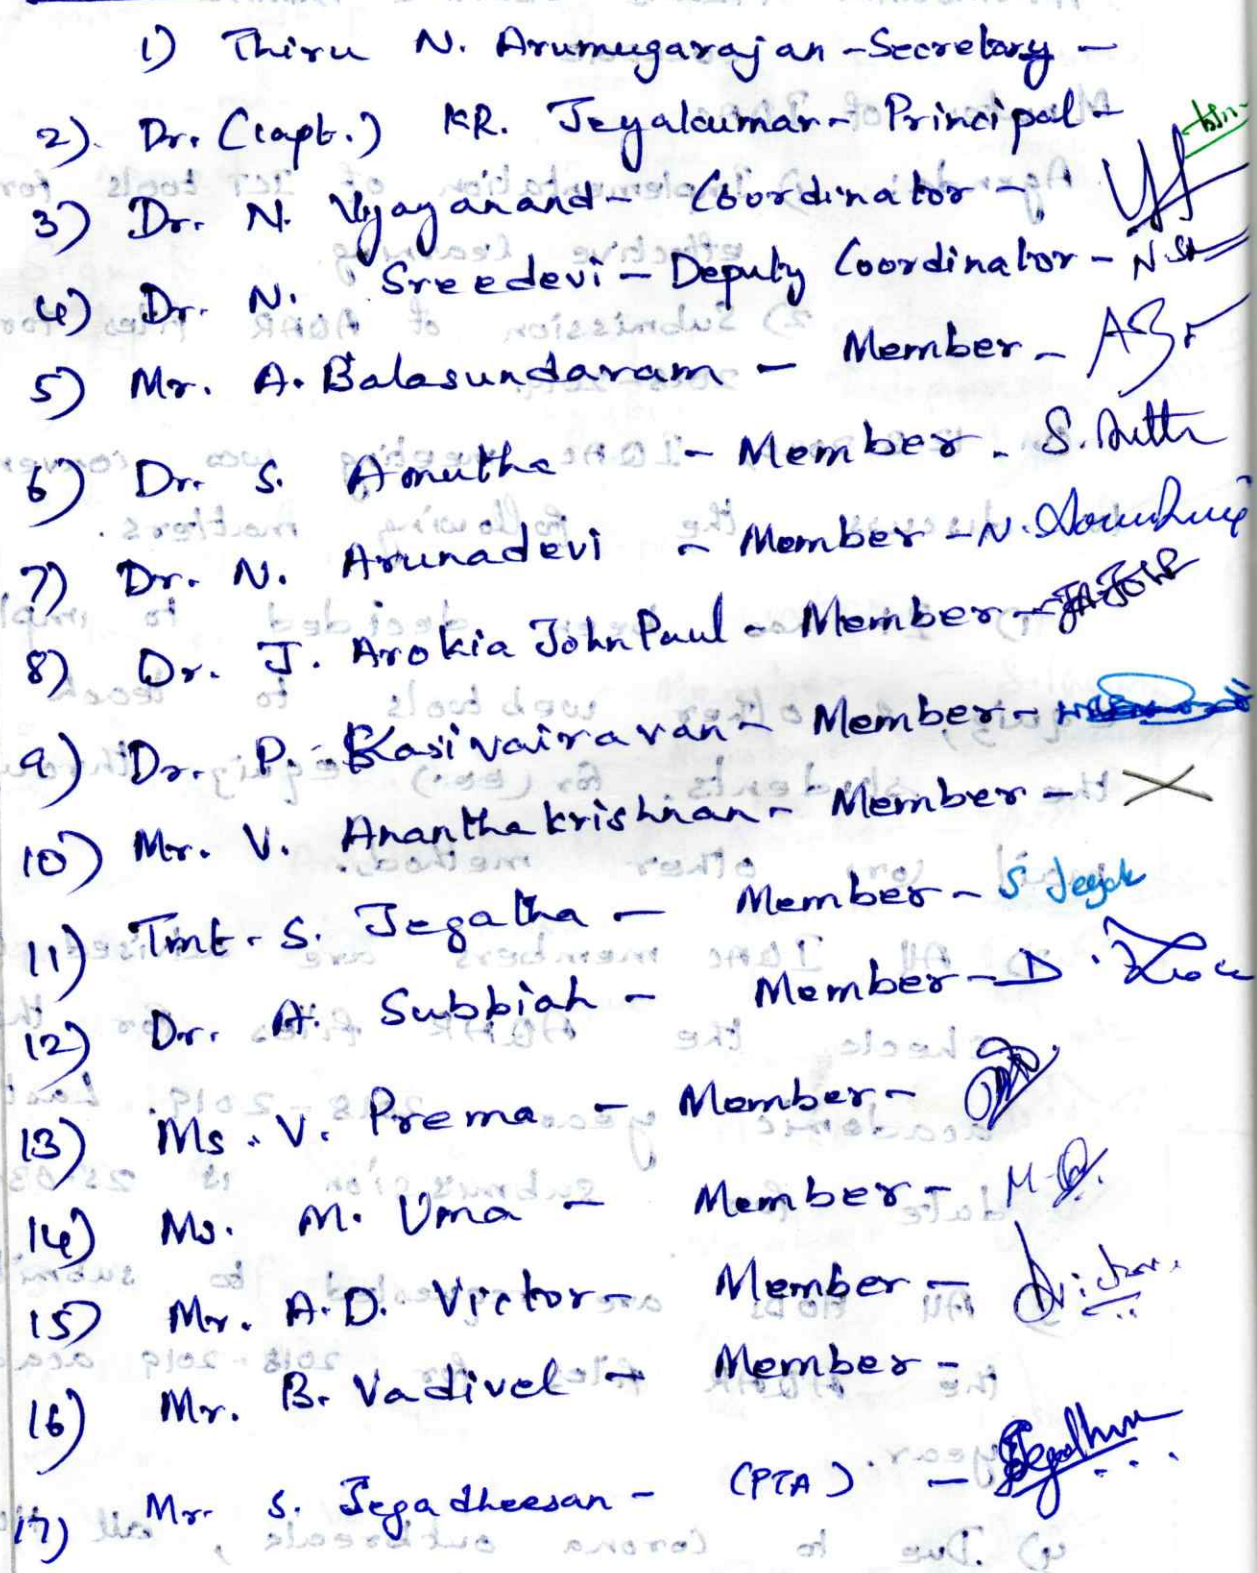 1) Thiru N. Arumugarajan - Secretary -
2). Dr. (Capt.) KR. Jeyakumar - Principal -
3) Dr. N. Vijayanand - Coordinator -
4) Dr. N. Sreedevi - Deputy Coordinator - N
5) Mr. A. Balasundaram - Member -
6) Dr. S. Amutha - Member - S.
7) Dr. N. Arunadevi - Member - N.
8) Dr. J. Arokia John Paul - Member -
9) Dr. P. Kasivairavan - Member -
10) Mr. V. Ananthakrishnan - Member - X
11) Tmt. S. Jegatha - Member - S
12) Dr. A. Subbiah - Member -
13) Ms. V. Prema - Member -
14) Ms. M. Uma - Member - M.
15) Mr. A.D. Victor - Member -
16) Mr. B. Vadivel - Member -
17) Mr. S. Jegadheesan - (PTA) -